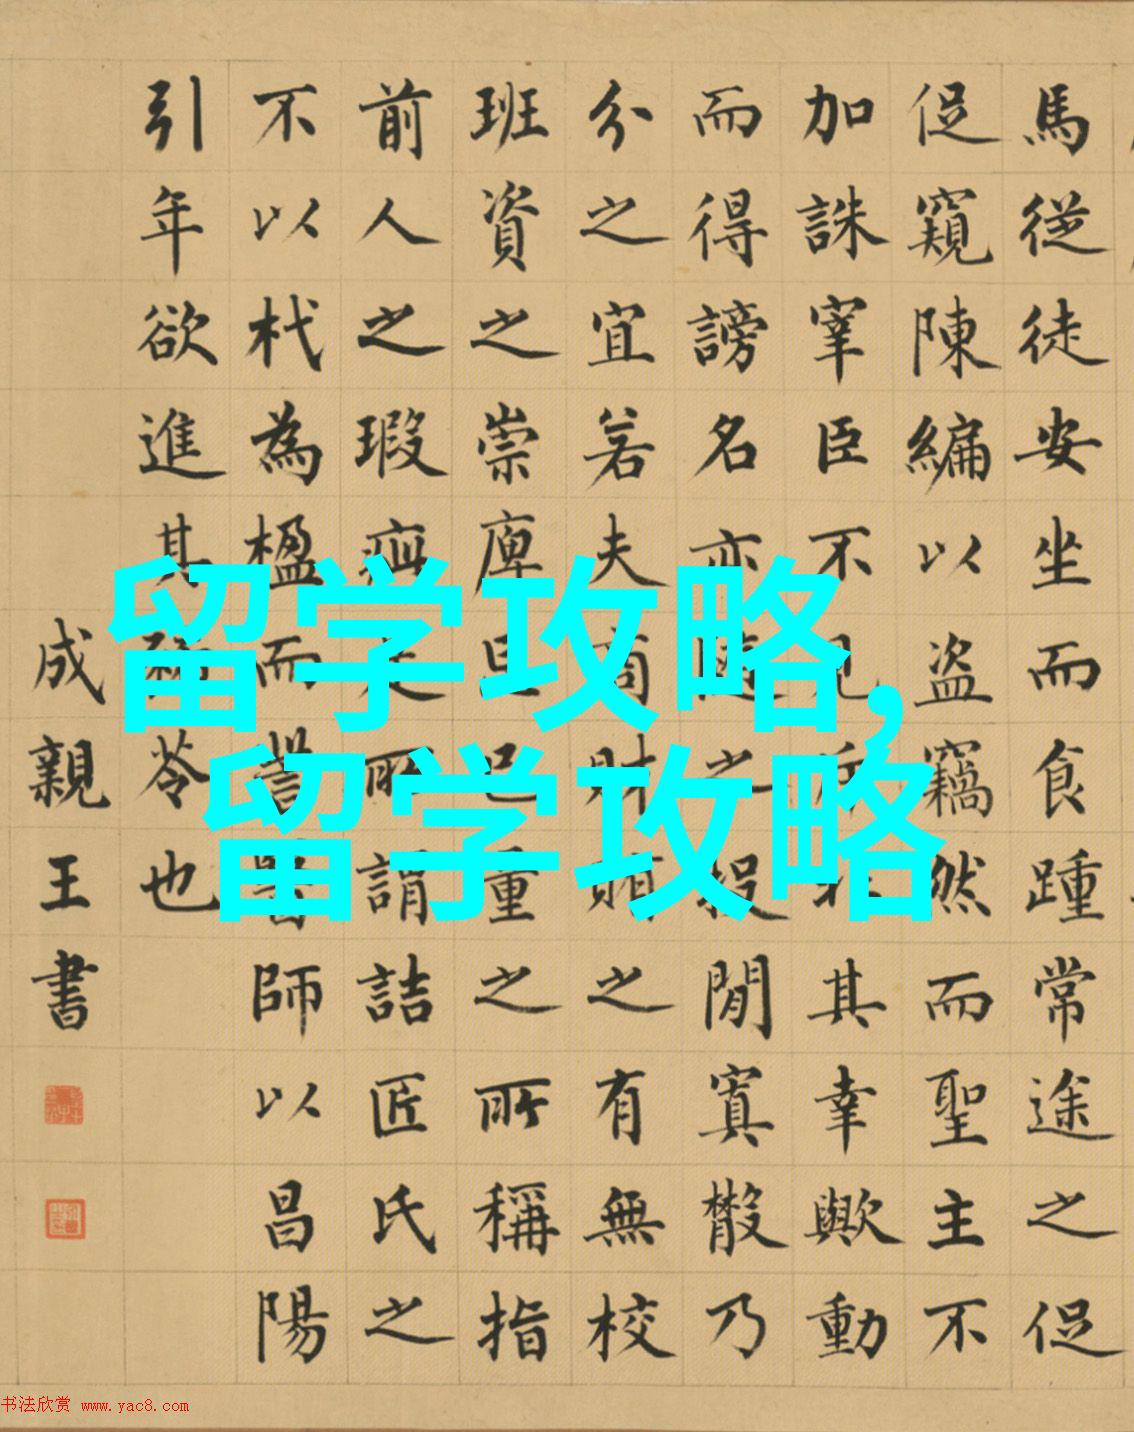 馬從徒安坐而食踵常途之促
促窺陳編以盜竊然而聖主不
加誅宰臣不見其幸歟動
而得謗名亦隨之投閒寘散乃
分之宜若夫商財賄之有無校
班資之崇庳己量之所稱指
前人之瑕疵是所謂詰匠氏之
不以杙為楹而訾醫師以昌陽
引年欲進其豨苓也
成親王書
留学攻略,
留学攻略
书法欣赏 www.yac8.com